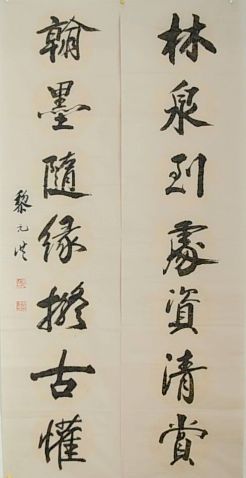 林泉到處資清賞
翰墨隨緣擬古懽
黎元洪